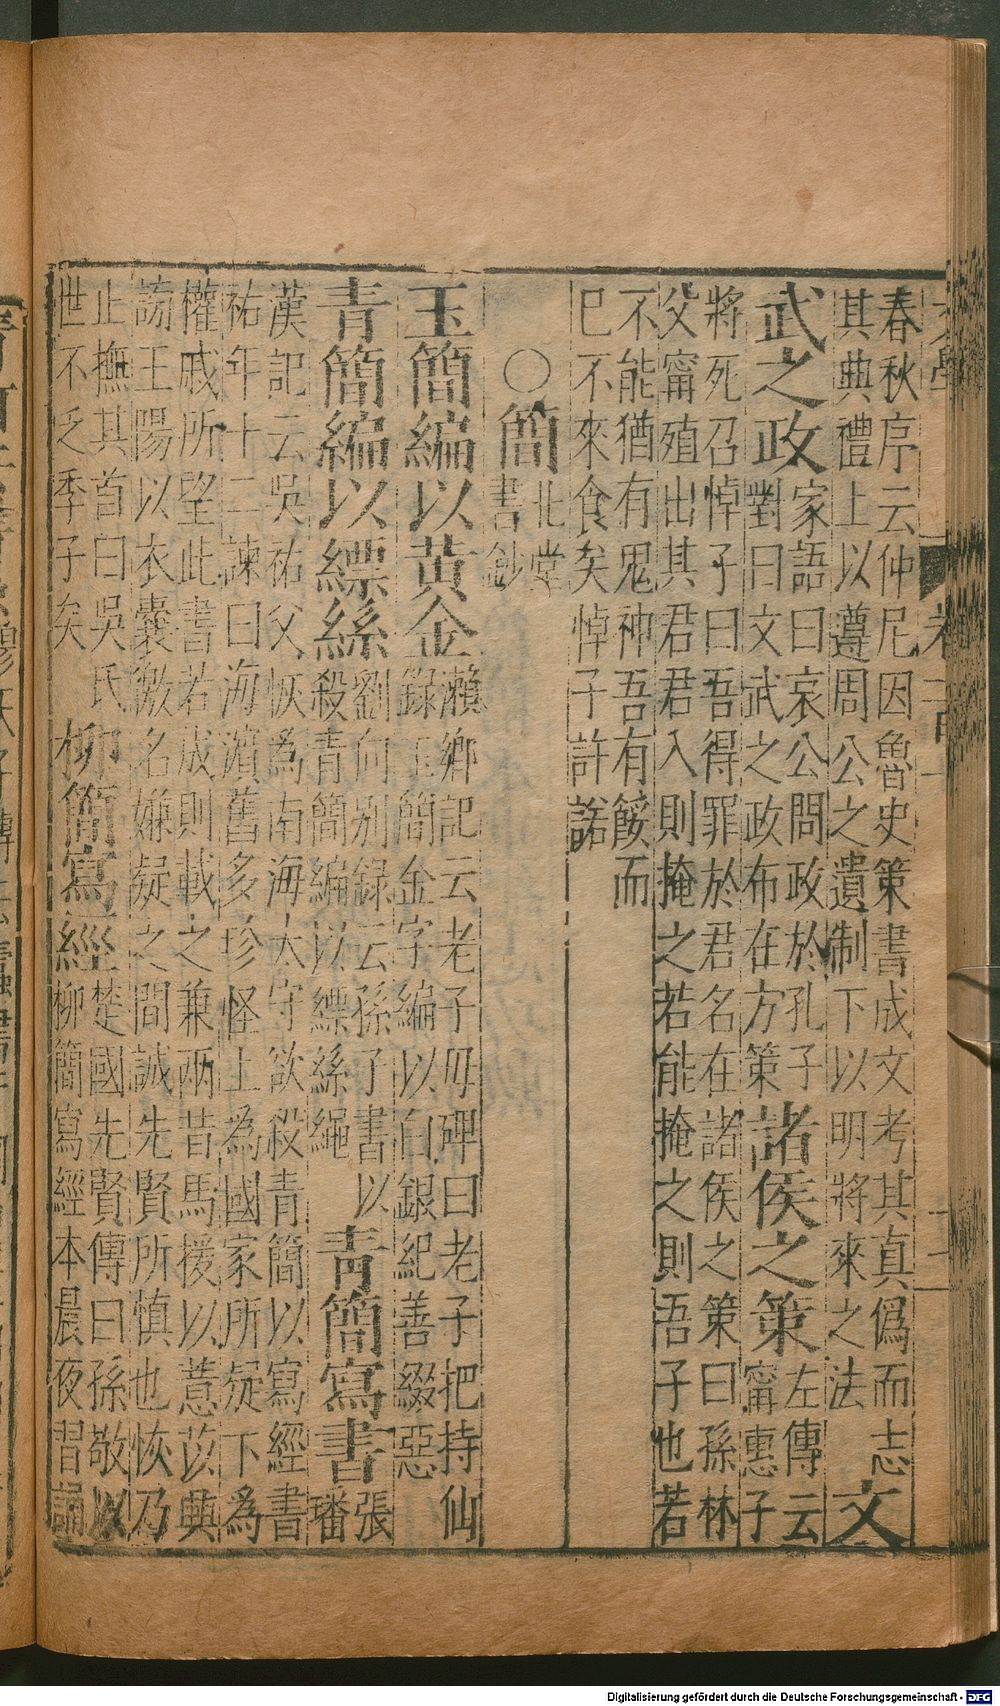 春秋序云仲尼因魯史策書成文考其真偽而志
其典禮上以遵周公之遺制下以明將來之法
文
武之政
家語曰哀公問政於孔子
對曰文武之政布在方策
諸侯之策
左傳云
甯惠子
將死召悼子曰吾得罪於君名在諸侯之策曰孫林
父甯殖出其君君入則掩之若能掩之則吾子也若
不能猶有鬼神吾有餒而
已不來食矣悼子許諾
○簡
北堂
書鈔
玉簡編以黃金
瀨鄉記云老子母碑曰老子把持仙
錄玉簡金字編以白銀紀善綴惡
青簡編以縹絲
劉向別録云孫子書以
殺青簡編以縹絲繩
青簡寫書
張
璠
漢記云吳祐父恢為南海太守欲殺青簡以寫經書
祐年十二諫曰海濱舊多珍怪上為國家所疑下為
權戚所望此書若成則載之兼兩昔馬援以薏苡興
謗王陽以衣囊徼名嫌疑之間誠先賢所慎也恢乃
止撫其首曰吳氏
世不乏季子矣
柳簡寫經
楚國先賢傳曰孫敬以
柳簡寫經本晨夜習誦
Digitalisierung gefördert durch die Deutsche Forschungsgemeinschaft - DFG